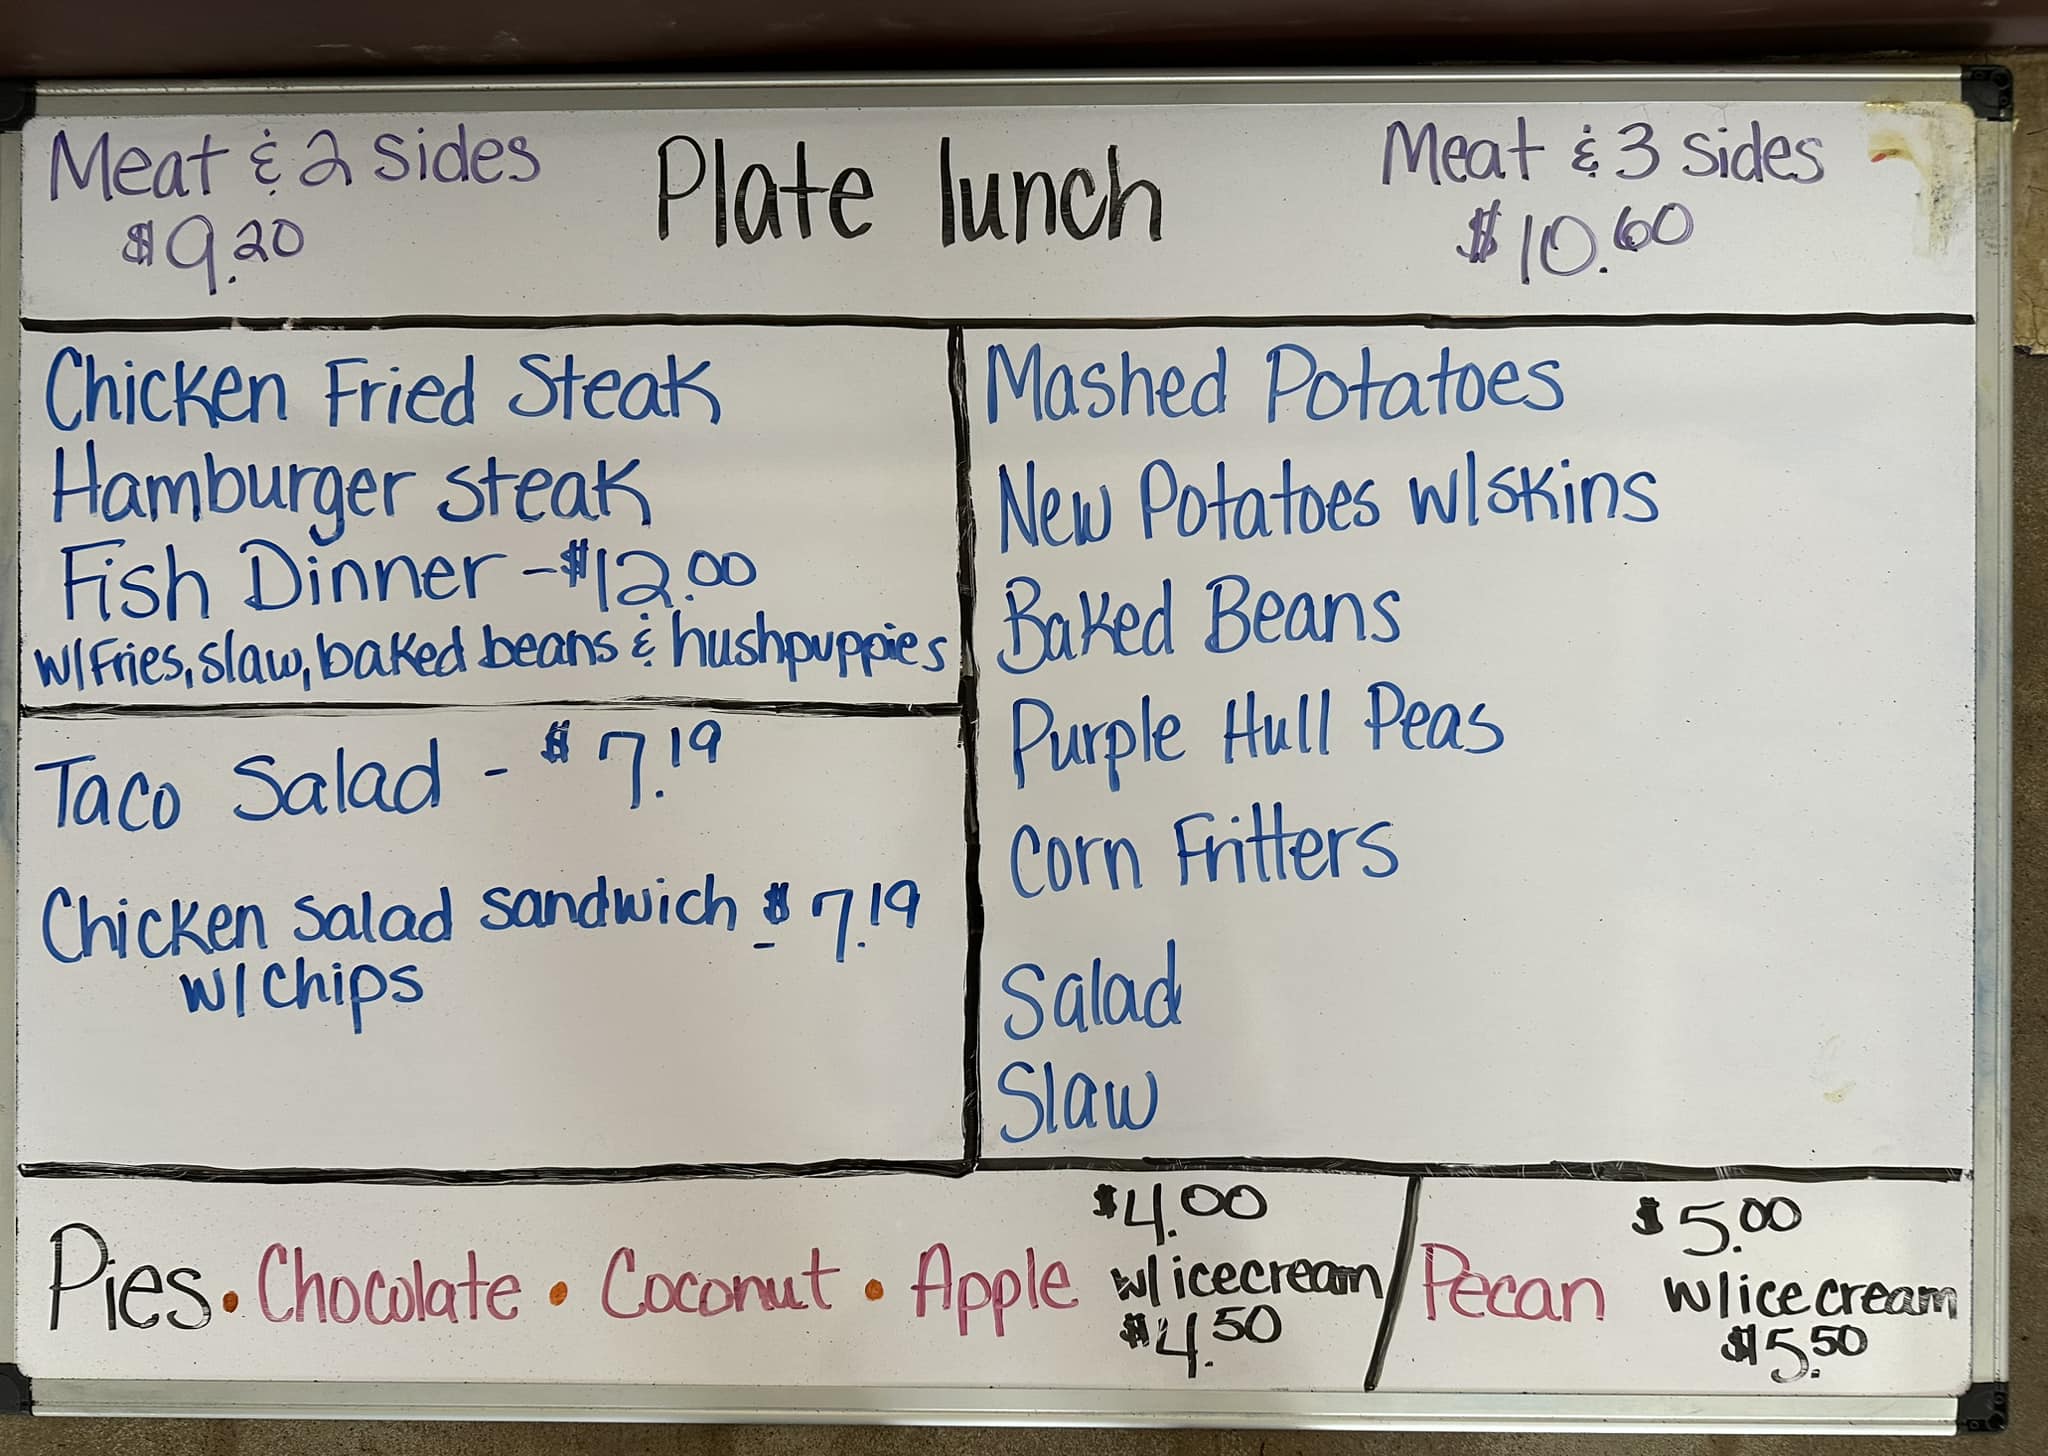 Meat & 2 sides
$9.20
Plate lunch
Meat & 3 sides
$10.60
Chicken Fried Steak
Hamburger steak
Fish Dinner - $12.00
w/Fries, slaw, baked beans & hushpuppies
Taco Salad - $7.19
Chicken salad sandwich - $7.19
w/chips
Mashed Potatoes
New Potatoes w/skins
Baked Beans
Purple Hull Peas
Corn Fritters
Salad
Slaw
Pies • Chocolate • Coconut • Apple
$4.00
w/icecream
$4.50
Pecan
$5.00
w/ice cream
$5.50